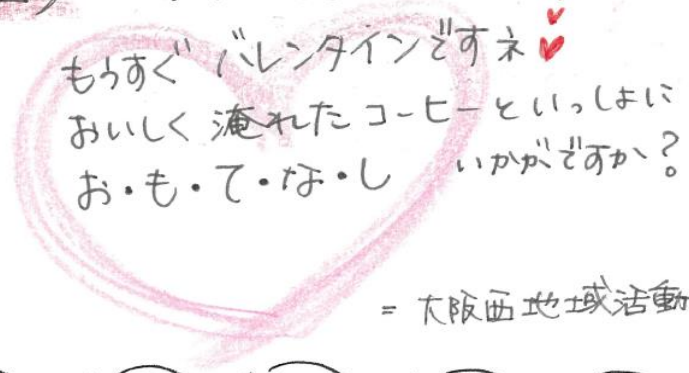 もうすぐ バレンタインですネ♥
おいしく 淹れた コーヒーといっしょに
お・も・て・な・し いかがですか?
= 大阪西地域活動